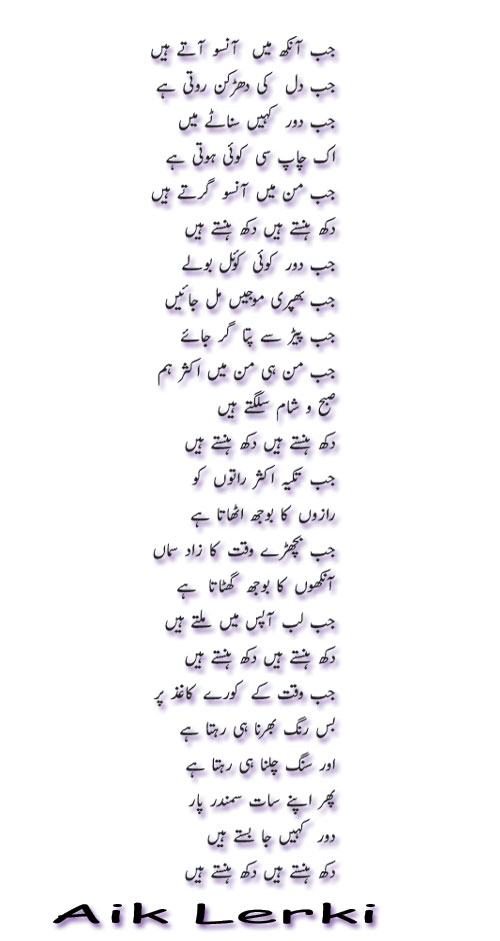 جب آنکھ میں آنسو آتے ہیں
جب دل کی دھڑکن روتی ہے
جب دور کہیں سناٹے میں
اک چاپ سی کوئی ہوتی ہے
جب من میں آنسو گرتے ہیں
دکھ ہنستے ہیں دکھ ہنستے ہیں
جب دور کوئی کوئل بولے
جب بھپری موجیں مل جائیں
جب پیڑ سے پتا گر جائے
جب من ہی من میں اکثر ہم
صبح و شام سلگتے ہیں
دکھ ہنستے ہیں دکھ ہنستے ہیں
جب تکیہ اکثر راتوں کو
رازوں کا بوجھ اٹھاتا ہے
جب بچھڑے وقت کا زاد سماں
آنکھوں کا بوجھ گھٹاتا ہے
جب لب آپس میں ملتے ہیں
دکھ ہنستے ہیں دکھ ہنستے ہیں
جب وقت کے کورے کاغذ پر
بس رنگ بھرنا ہی رہتا ہے
اور سنگ چلنا ہی رہتا ہے
پھر اپنے سات سمندر پار
دور کہیں جا بستے ہیں
دکھ ہنستے ہیں دکھ ہنستے ہیں
Aik Lerki